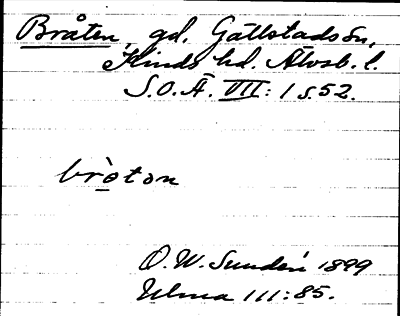 Bråten, gd. Gällstads sn,
Kinds hd. Älvsb. l.
S.O.Ä. VII: 1 s. 52.
bròtɔn
O. W. Sundén 1899
Ulma 111:85.